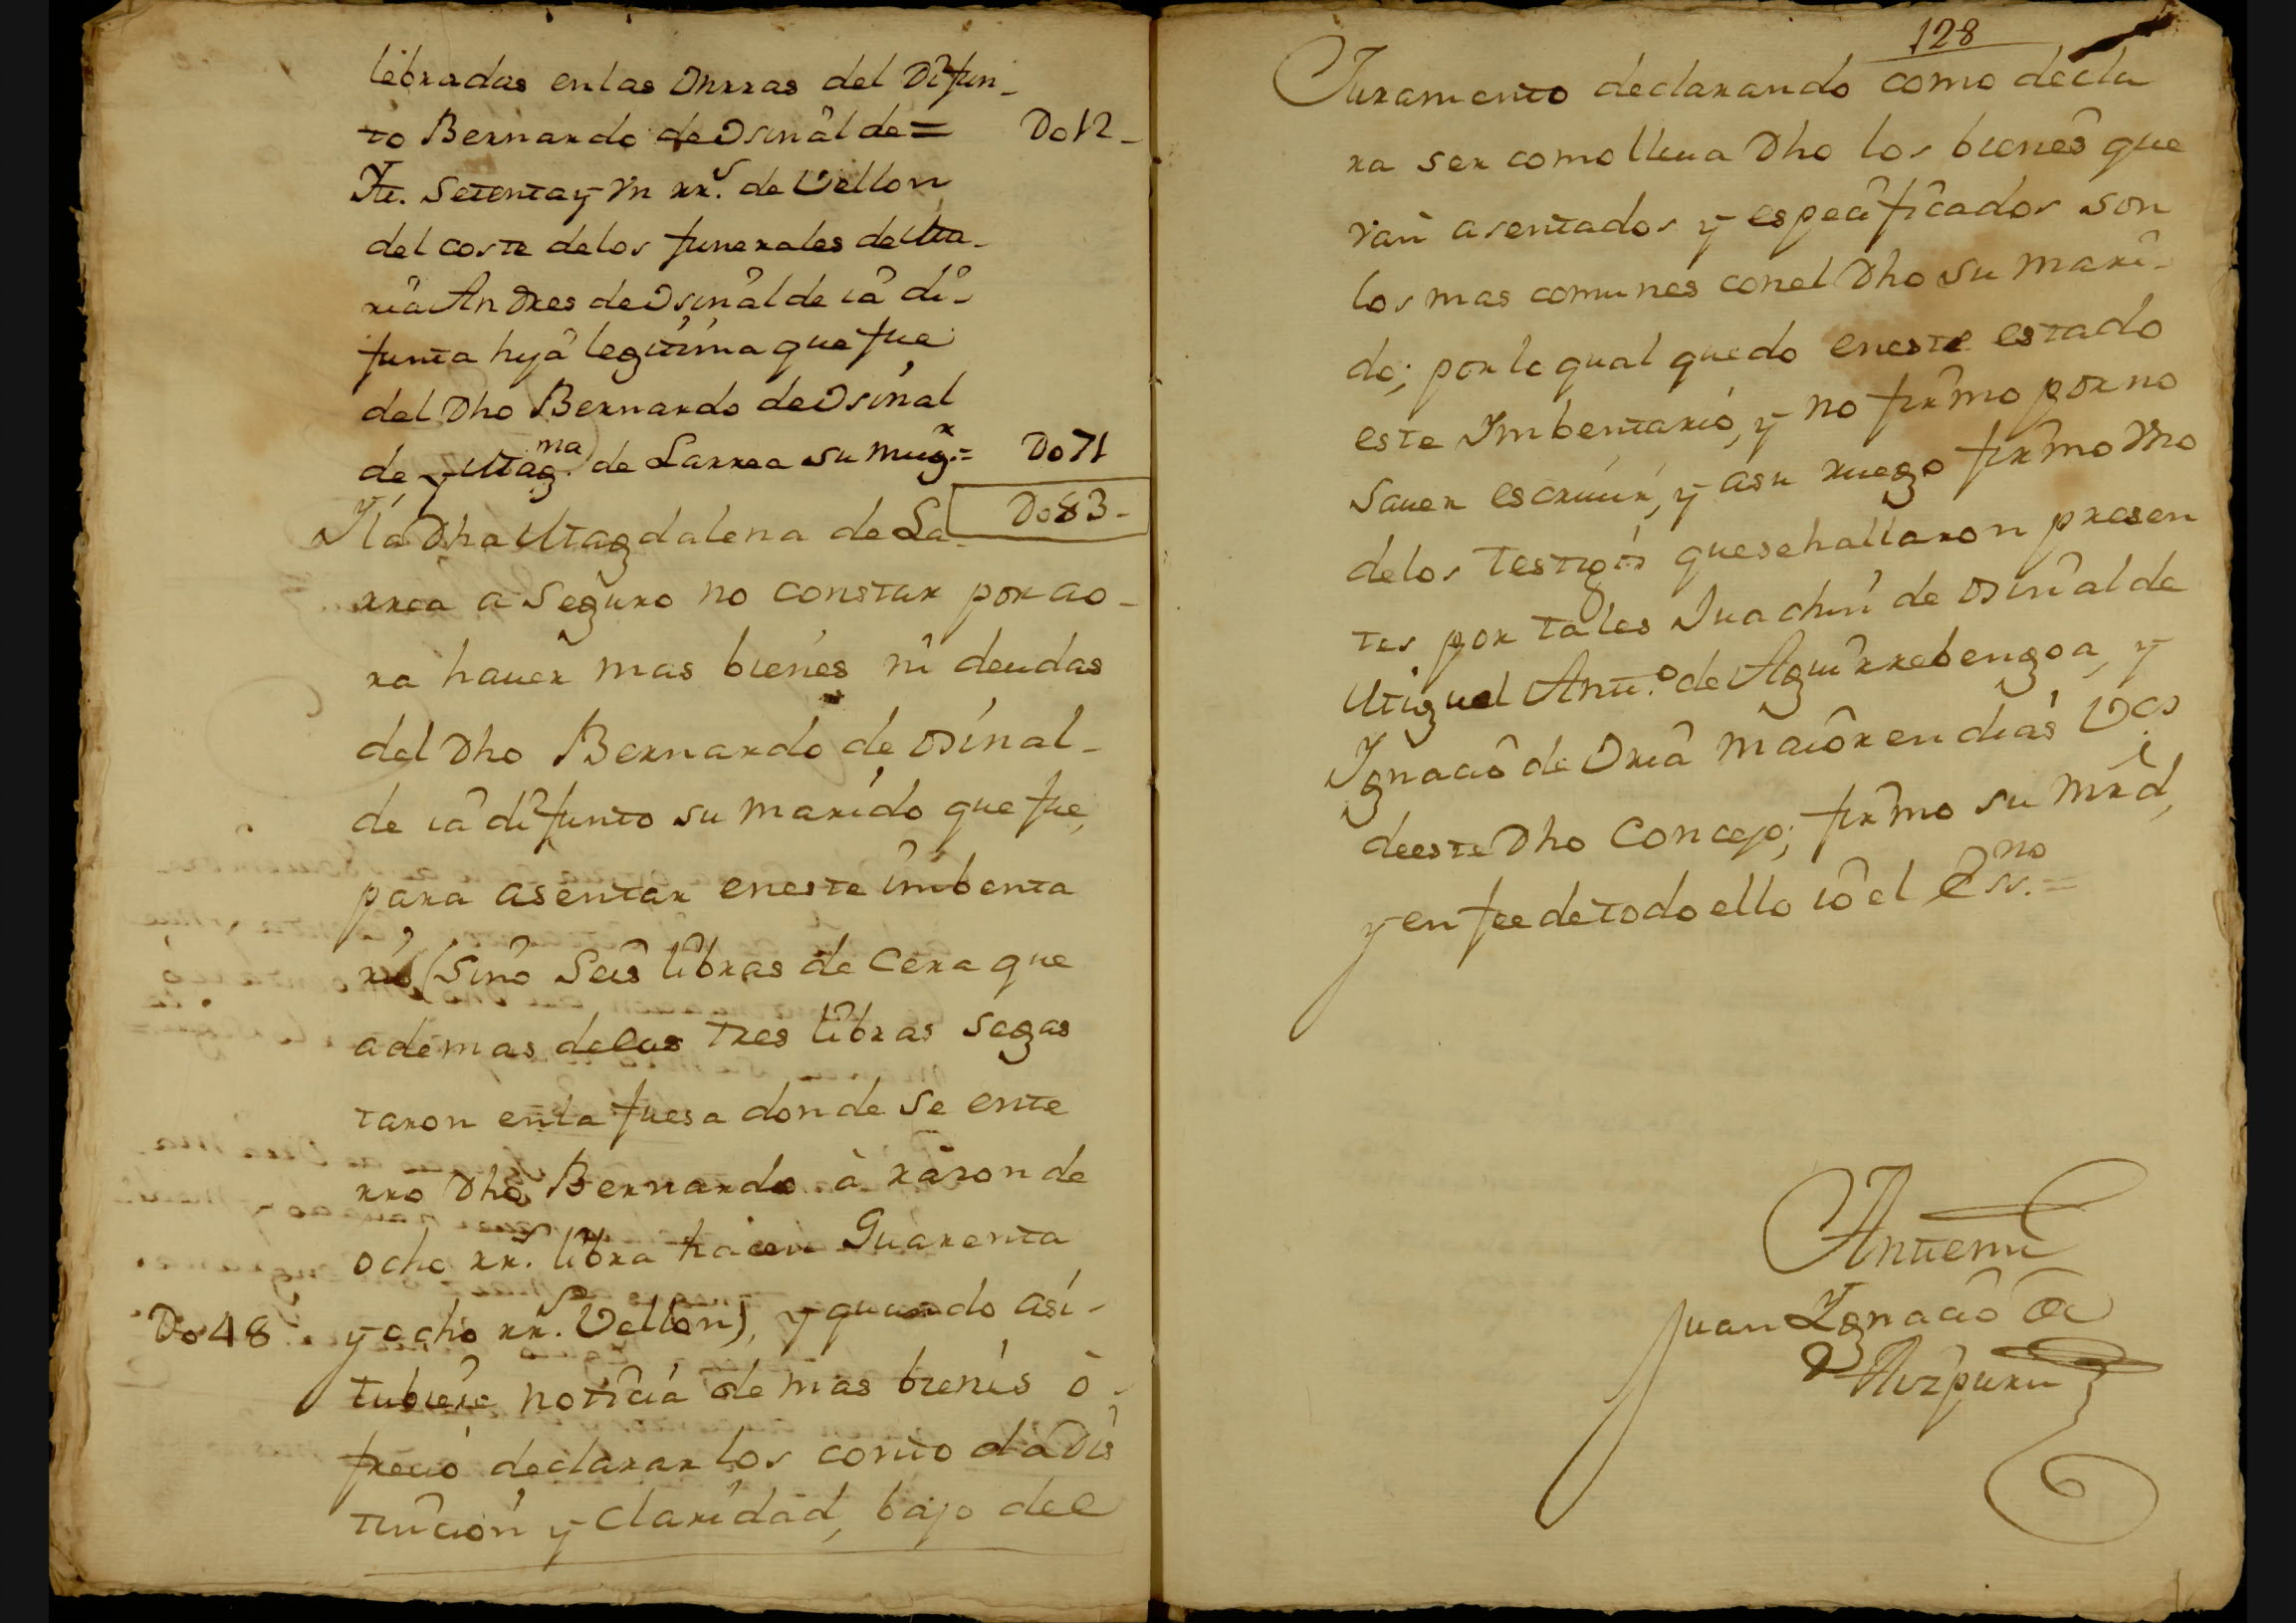 lebradas en las Onrras del Difun-
to Bernardo de Osinalde = Do12-
Itt. Setenta y un rrs. de Vellon
del coste de los funerales de Ma-
ria Andres de Osinalde ia di-
funta hija legitima que fue
del Dho Bernardo de Osinal
de y Magma. de Larrea su mugr.= Do71
Do83-
I la Dha Magdalena de La-
rrea aseguro no constar por ao-
ra hauer mas bienes ni deudas
del Dho Bernardo de Osinal-
de ia difunto su marido que fue,
para asentar en este imbenta
rio (Sino Seis libras de Cera que
ademas de las tres libras se gas
taron en la fuesa donde se ente
rro Dho Bernardo à razon de
ocho rrs. libra hacen Quarenta
Do48 y ocho rrs. Vellon), y quando asi-
tubiere noticia de mas bienes ò-
frecio declararlos con to da Dis
tincion y claridad, bajo del
128
Juramento declarando como decla
ra ser como lleua Dho los bienes que
van asentados y especificados son
los mas comunes con el Dho su mari-
do; por lo qual quedo en este estado
este Imbentario, y no firmo por no
sauer escriuir, y a su ruego firmo vno
de los testigos que se hallaron presen
tes por tales Juachin de Osinalde
Miguel Antto. de Aguirrebengoa, y
Ignacio de Oria maior en dias Vos.
de este Dho Concejo; firmo su mrd,
y en fee de todo ello io el Essno.=
Antemi
Juan Ignacio de
Aizpuru